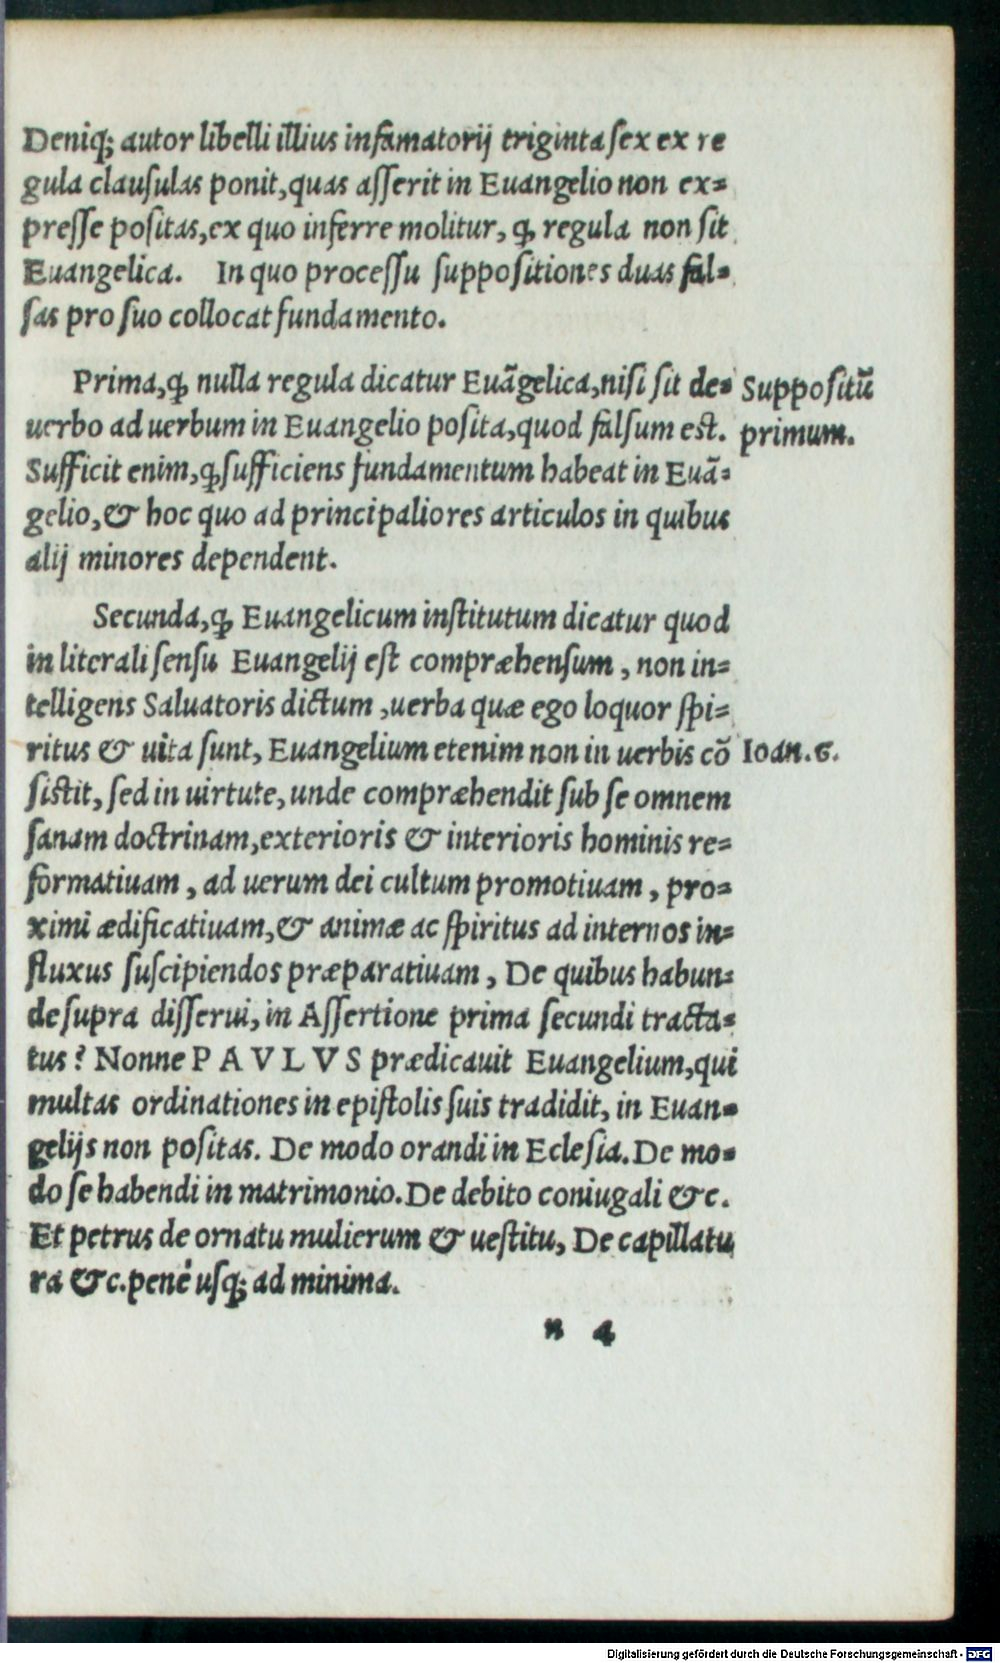 Deniq; autor libelli illius infamatorij triginta sex ex re
gula clausulas ponit, quas asserit in Euangelio non ex=
presse positas, ex quo inferre molitur, ꝙ regula non sit
Euangelica. In quo processu suppositiones duas fal=
sas pro suo collocat fundamento.
Prima, ꝙ nulla regula dicatur Euãgelica, nisi sit de= Suppositũ
uerbo ad uerbum in Euangelio posita, quod falsum est. primum.
Sufficit enim, ꝙ sufficiens fundamentum habeat in Euã=
gelio, & hoc quo ad principaliores articulos in quibus
alij minores dependent.
Secunda, ꝙ Euangelicum institutum dicatur quod
in literali sensu Euangelij est compræhensum, non in=
telligens Saluatoris dictum, uerba quæ ego loquor spi=
ritus & uita sunt, Euangelium etenim non in uerbis cõ Ioan. 6.
sistit, sed in uirtute, unde compræhendit sub se omnem
sanam doctrinam, exterioris & interioris hominis re=
formatiuam, ad uerum dei cultum promotiuam, pro=
ximi ædificatiuam, & animæ ac spiritus ad internos in=
fluxus suscipiendos præparatiuam, De quibus habun=
de supra disserui, in Assertione prima secundi tracta=
tus? Nonne PAVLVS prædicauit Euangelium, qui
multas ordinationes in epistolis suis tradidit, in Euan=
gelijs non positas. De modo orandi in Eclesia. De mo=
do se habendi in matrimonio. De debito coniugali &c.
Et petrus de ornatu mulierum & uestitu, De capillatu
ra &c. penè usq; ad minima.
n 4
Digitalisierung gefördert durch die Deutsche Forschungsgemeinschaft - DFG